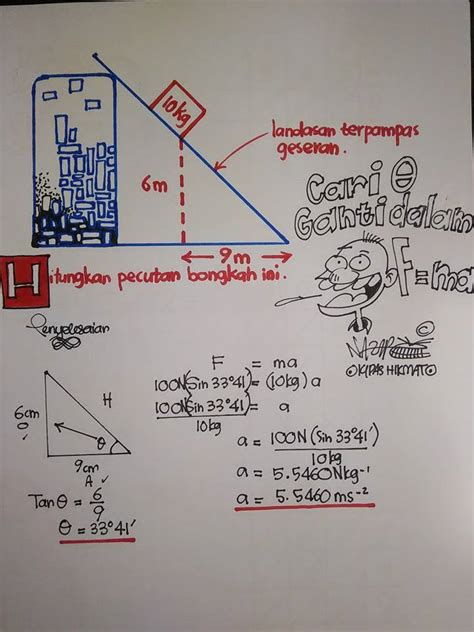 10kg
landasan terpampas
geseran.
6m
9m
Cari θ
Ganti dalam
F=ma
Hitungkan pecutan bongkah ini.
©
Penyelesaian
KIPAS HIKMAT
F = ma
100N(Sin 33°41') = (10kg) a
100N(Sin 33°41') = a
10kg
6cm
O
H
θ
9cm
A
a = 100N (Sin 33°41')
10kg
Tan θ = 6
9
a = 5.5460 Nkg⁻¹
θ = 33°41'
a = 5.5460 ms⁻²